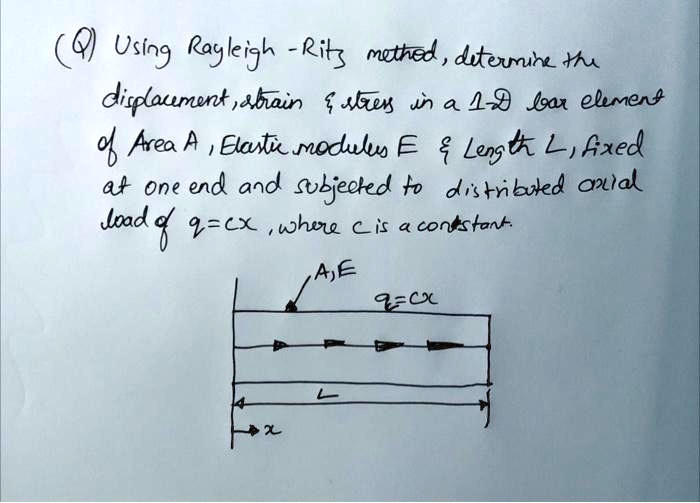 (Q) Using Rayleigh-Ritz method, determine the
displacement, strain & stress in a 1-D bar element
of Area A, Elastic modulus E & Length L, fixed
at one end and subjected to distributed axial
load of q=cx, where c is a constant.
A,E
q=cx
L
x